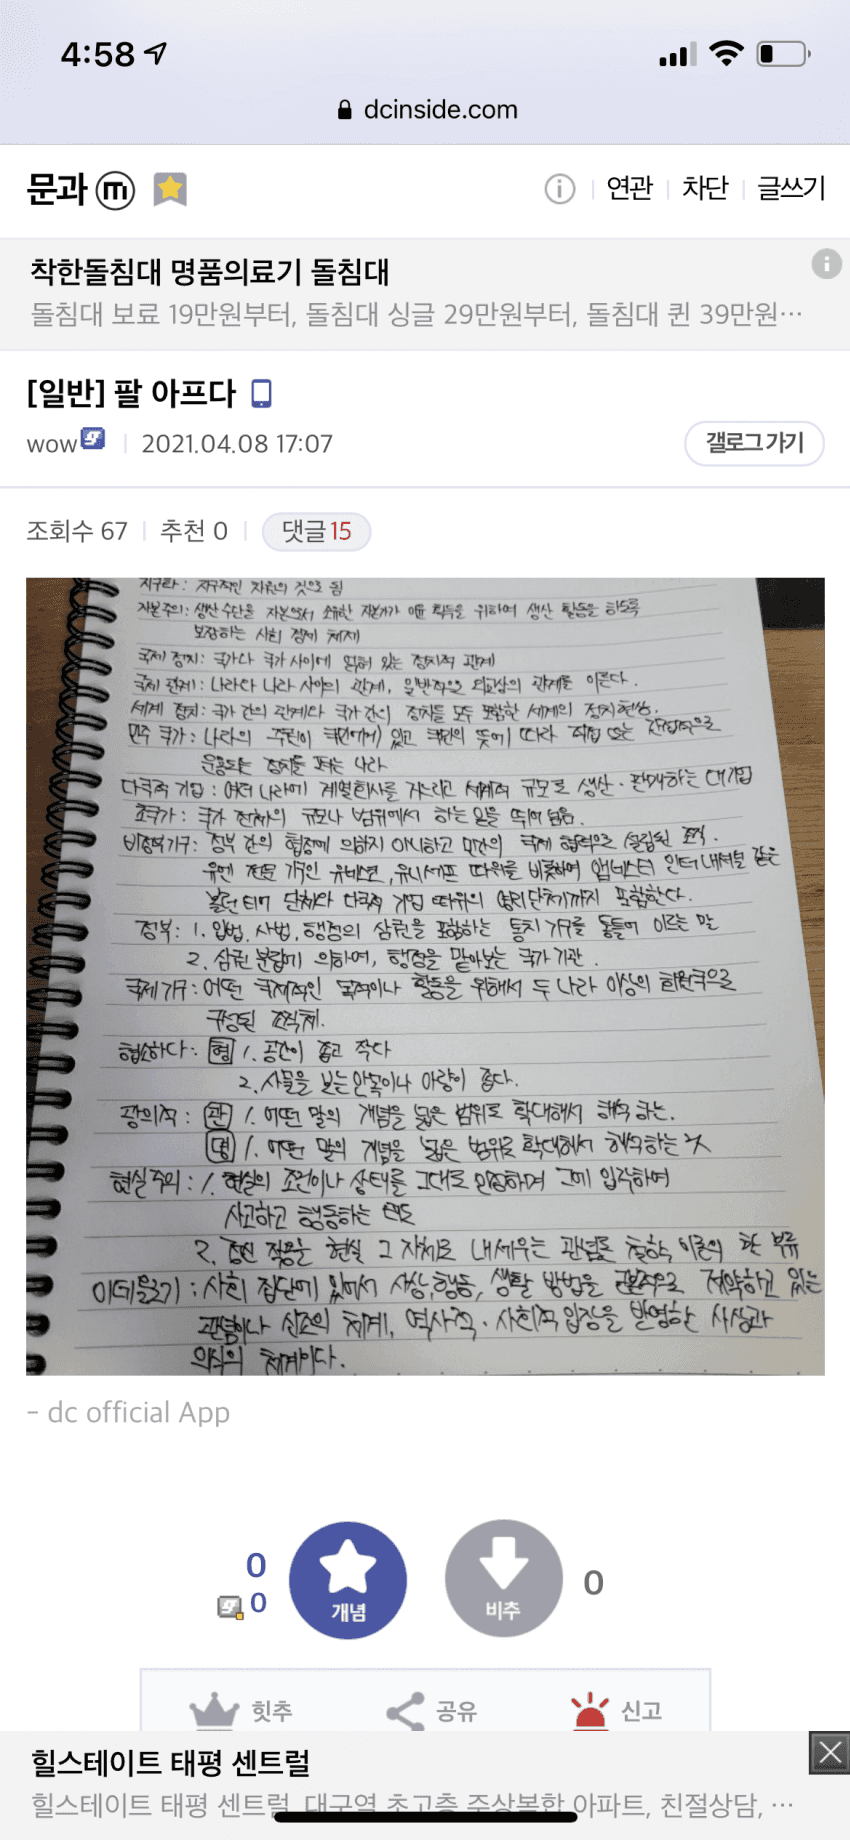 4:58
dcinside.com
문과 m
연관 차단 글쓰기
착한돌침대 명품의료기 돌침대
돌침대 보료 19만원부터, 돌침대 싱글 29만원부터, 돌침대 퀸 39만원…
[일반] 팔 아프다
wow 2021.04.08 17:07
갤로그 가기
조회수 67 추천 0 댓글 15
지구화 : 지구적인 차원의 것으로 됨
자본주의 : 생산수단을 자본으로서 소유한 자본가가 이윤 획득을 위하여 생산 활동을 하도록
보장하는 사회 경제 체제
국제 정치 : 국가나 국가 사이에 얽혀 있는 정치적 관계
국제 관계 : 나라와 나라 사이의 관계, 일반적으로 외교상의 관계를 이른다.
세계 정치 : 국가 간의 관계나 국가 간의 정치를 모두 포함한 세계의 정치현상.
민주 국가 : 나라의 주권이 국민에게 있고 국민의 뜻에 따라 직접 또는 간접적으로
운용되는 정치를 펴는 나라
다국적 기업 : 여러 나라에 계열회사를 거느리고 세계적 규모로 생산 · 판매하는 대기업
초국가 : 국가 전체의 규모나 범위에서 하는 일을 뛰어 넘음.
비정부기구 : 정부 간의 협정에 의하지 아니하고 민간의 국제 협력으로 설립된 조직.
유엔 전문 기구인 유네스코, 유니세프 따위를 비롯하여 앰네스티 인터내셔널 같은
볼런티어 단체와 다국적 기업 따위의 영리단체까지 포함한다.
정부 : 1. 입법, 사법, 행정의 삼권을 포함하는 통치 기구를 통틀어 이르는 말
2. 삼권 분립에 의하여, 행정을 맡아보는 국가 기관.
국제기구 : 어떤 국제적인 목적이나 활동을 위해서 두 나라 이상의 회원국으로
구성된 조직체.
협소하다 : 형 1. 공간이 좁고 작다
2. 사물을 보는 안목이나 아량이 좁다.
광의적 : 관 1. 어떤 말의 개념을 넓은 범위로 확대해서 해석하는.
명 1. 어떤 말의 개념을 넓은 범위로 확대해서 해석하는 것
현실주의 : 1. 현실의 조건이나 상태를 그대로 인정하며 그에 입각하여
사고하고 행동하는 태도
2. 현실 그 자체로 내세우는 관념론 철학 이론의 한 부류
이데올로기 : 사회 집단에 있어서 사상, 행동, 생활 방법을 근본적으로 제약하고 있는
관념이나 신조의 체계, 역사적 · 사회적 입장을 반영한 사상과
의식의 체계이다.
- dc official App
0 개념 비추 0
0
힛추 공유 신고
힐스테이트 태평 센트럴
힐스테이트 태평 센트럴, 대구역 초고층 주상복합 아파트, 친절상담, …